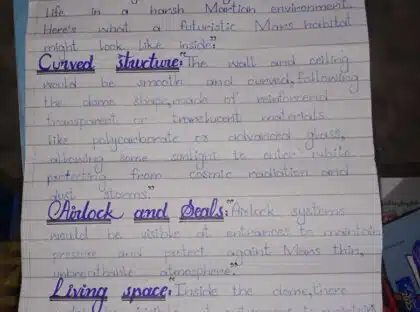 Life in a harsh Martian environment.
Here's what a futuristic Mars habitat
might look like inside:"
Curved Structure: The wall and ceiling
would be smooth and curved, following
the dome shape, made of reinforcend
transparent or translucent materials
like polycarbonate or advanced glass,
allowing some sunlight to enter while
protecting from cosmic radiation and
dust storms."
Airlock and Seals: Airlock systems
would be visible at entrances to maintain
pressure and protect againt Mars thin,
unbreathable atmosphere."
Living space: Inside the dome, there